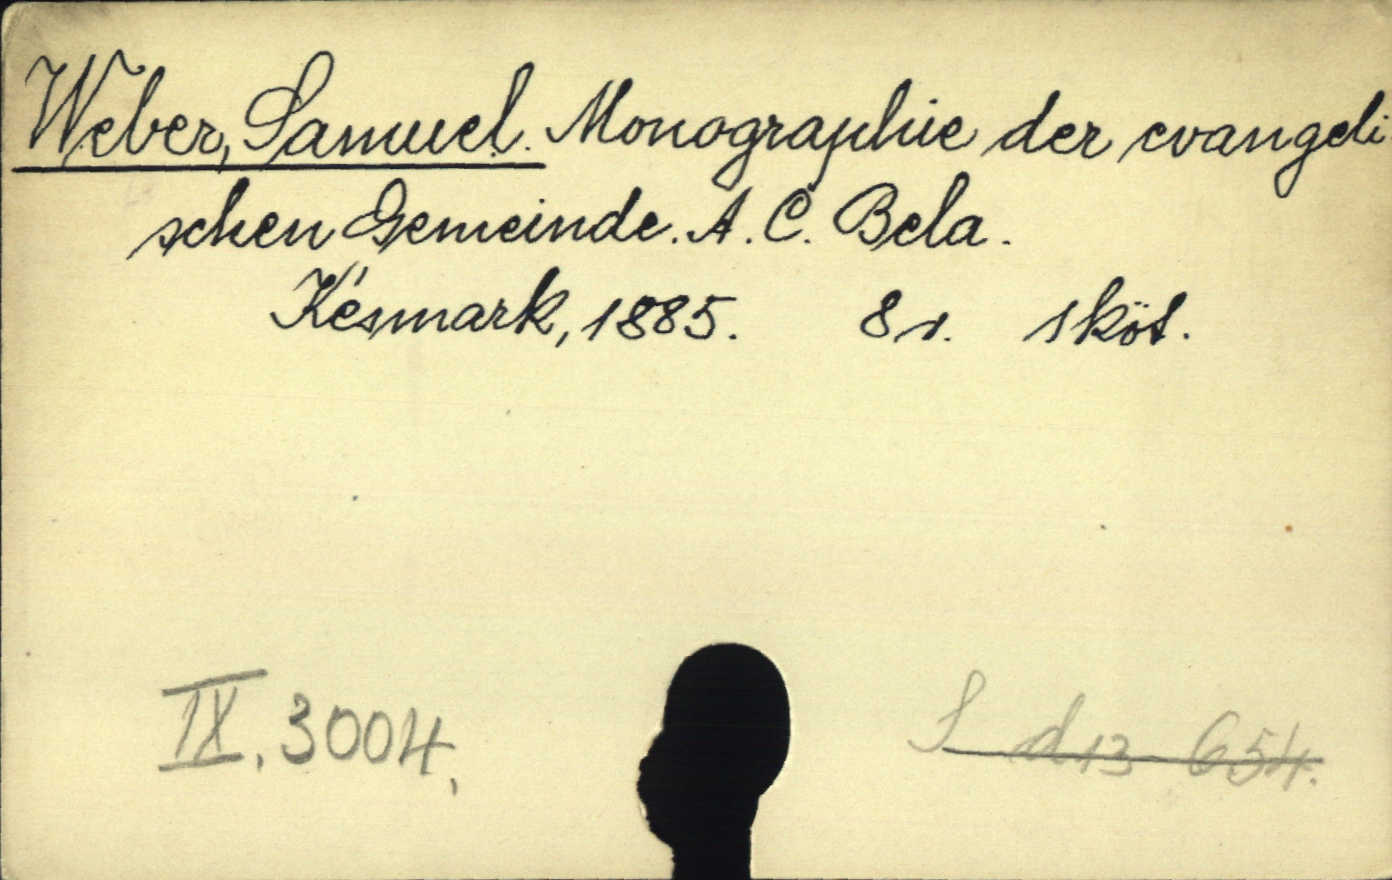 Weber, Samuel. Monographie der evangeli
schen Gemeinde. A. C. Bela.
Késmark, 1885. 8 r. 1 köt.
IX. 3004.
S d 13 654.